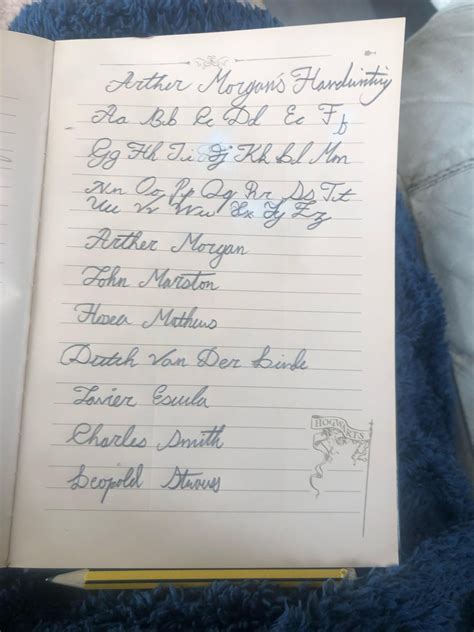 Arther Morgan's Handwriting
Aa Bb Cc Dd Ee Ff
Gg Hh Ii Jj Kk Ll Mm
Nn Oo Pp Qq Rr Ss Tt
Uu Vv Ww Xx Yy Zz
Arther Morgan
John Marston
Hosea Mathews
Dutch Van Der Linde
Javier Escuela
Charles Smith
Leopold Strauss
HOGWARTS